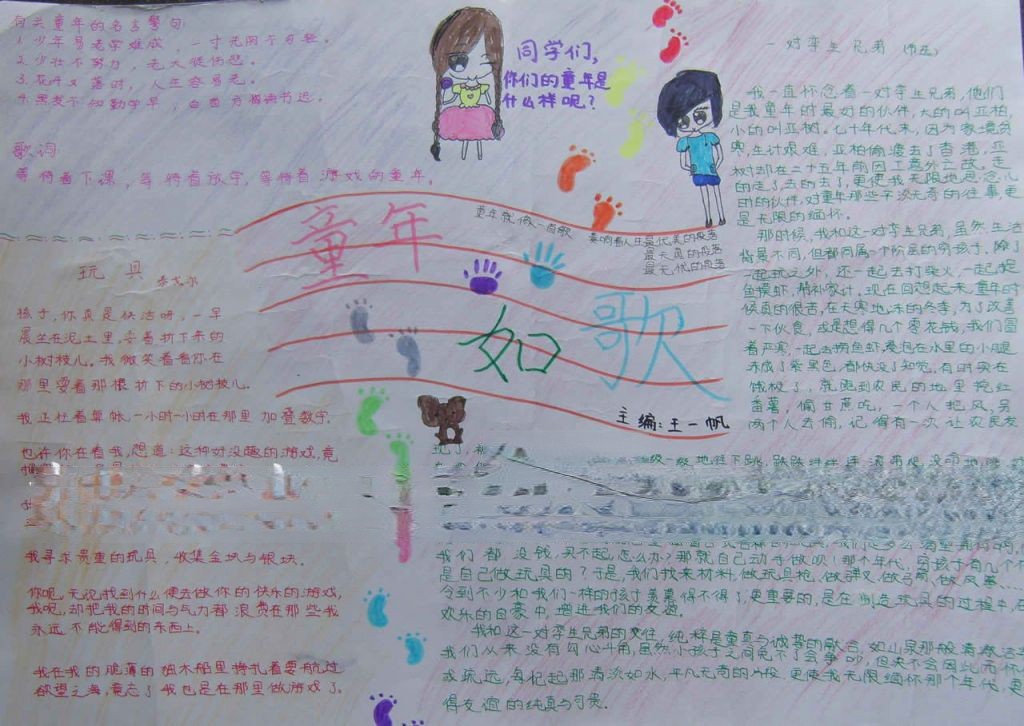 有关童年的名言警句
1.少年易老学难成,一寸光阴不可轻。
2.少壮不努力,老大徒伤悲。
3.花开又落时,人生容易老。
4.黑发不知勤学早,白首方悔读书迟。
歌词
等待着下课,等待着放学,等待着游戏的童年。
同学们,
你们的童年是
什么样呢?
童年
如
歌
童年就像一首歌
最天真的段落
最无忧的段落
主编:王一帆
玩具
泰戈尔
孩子,你真是快活呀,一早
晨坐在泥土里,耍着折下来的
小树枝儿。我微笑着看你在
那里耍着那根折下的小树枝儿。
我正忙着算帐,一小时一小时在那里加叠数字。
也许你在看我,想道:这种好没趣的游戏,竟
我寻求贵重的玩具,收集金块与银块。
你呢,无论找到什么便去做你的快乐的游戏,
我呢,却把我的时间与气力都浪费在那些我
永远不能得到的东西上。
我在我的脆薄的独木船里挣扎着要航过
欲望之海,竟忘了我也是在那里做游戏了。
一对孪生兄弟
我一直怀念着一对孪生兄弟,他们
是我童年时最好的伙伴,大的叫亚柏,
小的叫亚树,七十年代末,因为家境贫
寒,生计艰难,亚柏偷渡去了香港,亚
树却在二十五年前因工意外亡故,走
的走了,去的去了,更使我无限地思念儿
时的伙伴,对童年那些平淡无奇的往事,更
是无限的缅怀。
那时候,我和这一对孪生兄弟,虽然生活
背景不同,但都同属一个阶层的穷孩子,除了
一起玩之外,还一起去打柴火,一起捉
鱼摸虾,帮补家计。现在回想起来,童年时
候真的很苦,在天寒地冻的冬季,为了改善
一下伙食,或是想得几个零花钱,我们冒
着严寒,一起去捞鱼虾,浸泡在水里的小腿
冻成了紫黑色,都快没了知觉,有时实在
饿极了,就跑到农民的地里挖红
番薯,偷甘蔗吃,一个人把风,另
两个人去偷,记得有一次让农民发
现了,
级一级地往下跳,跌跌
我们都没钱,买不起,怎么办?那就自己动手做呗!那个年代,男孩子有几个不
是自己做玩具的?于是,我们找来材料,做玩具枪,做弹叉,做弓箭,做风筝……
令到不少和我们一样的孩子羡慕得不得了,更重要的,是在制造玩具的过程中,在
欢乐的自豪中,增进我们的友谊。
我和这一对孪生兄弟的交往,纯粹是童真与诚挚的融合,如山泉那般清澈洁净
我们从来没有勾心斗角,虽然小孩子之间免不了会争吵,但决不会因此而怀
或疏远,每忆起那清淡如水,平凡无奇的片段,更使我无限缅怀那个年代,更
得友谊的纯真与可贵。